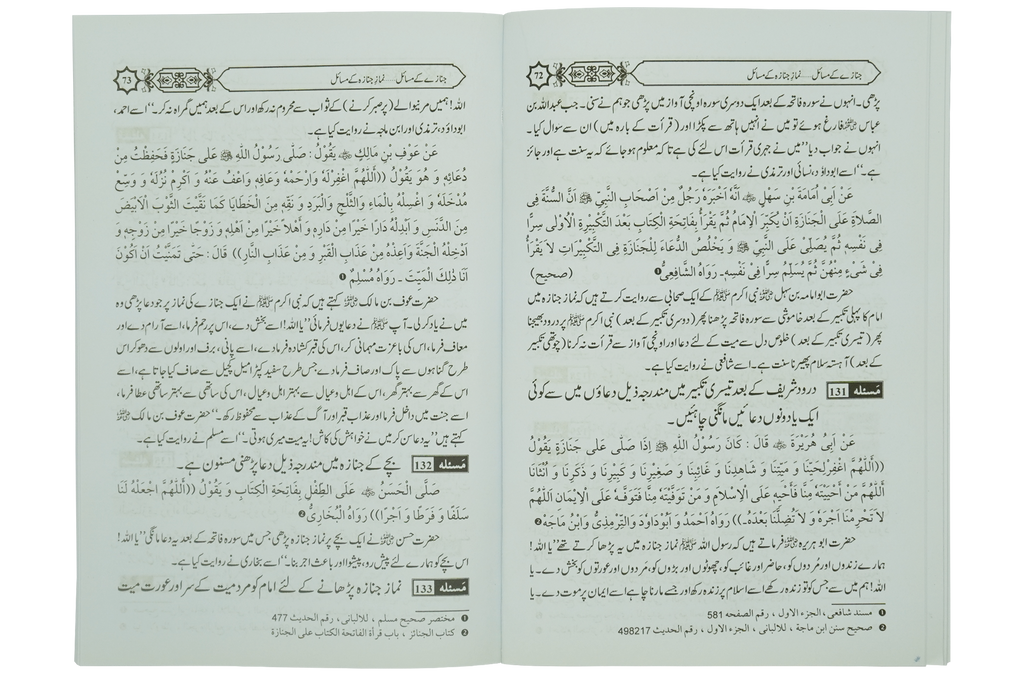 جنازے کے مسائل.....نماز جنازہ کے مسائل
72
پڑھی۔ انہوں نے سورہ فاتحہ کے بعد ایک دوسری سورہ اونچی آواز میں پڑھی جو ہم نے سنی۔ جب عبداللہ بن
عباس ﷜ فارغ ہوئے تو میں نے انہیں ہاتھ سے پکڑا اور (قرأت کے بارہ میں) ان سے سوال کیا۔
انہوں نے جواب دیا ”میں نے جہری قرأت اس لئے کی ہے تاکہ معلوم ہو جائے کہ یہ سنت ہے اور جائز
ہے۔“ اسے ابوداؤد، نسائی اور ترمذی نے روایت کیا ہے۔
عَنْ اَبِیْ اُمَامَةَ بْنِ سَهْلٍ ﷜ اَنَّهُ اَخْبَرَهُ رَجُلٌ مِنْ اَصْحَابِ النَّبِیِّ ﷺ اَنَّ السُّنَّةَ فِی
الصَّلاَةِ عَلَی الْجَنَازَةِ اَنْ یُکَبِّرَ الْاِمَامُ ثُمَّ یَقْرَأُ بِفَاتِحَةِ الْکِتَابِ بَعْدَ التَّکْبِیْرَةِ الْاُوْلٰی سِرًّا
فِیْ نَفْسِهٖ ثُمَّ یُصَلِّیْ عَلَی النَّبِیِّ ﷺ وَ یُخْلِصُ الدُّعَاءَ لِلْجَنَازَةِ فِی التَّکْبِیْرَاتِ لاَ یَقْرَأُ
فِیْ شَیْءٍ مِنْهُنَّ ثُمَّ یُسَلِّمُ سِرًّا فِیْ نَفْسِهٖ۔ رَوَاهُ الشَّافِعِیُّ❶ (صحیح)
حضرت ابوامامہ بن سہل ﷜ نبی اکرم ﷺ کے ایک صحابی سے روایت کرتے ہیں کہ نماز جنازہ میں
امام کا پہلی تکبیر کے بعد خاموشی سے سورہ فاتحہ پڑھنا پھر (دوسری تکبیر کے بعد) نبی اکرم ﷺ پر درود بھیجنا
پھر (تیسری تکبیر کے بعد) خلوص دل سے میت کے لئے دعا اور اونچی آواز سے قرأت نہ کرنا (چوتھی تکبیر
کے بعد) آہستہ سلام پھیرنا سنت ہے۔ اسے شافعی نے روایت کیا ہے۔
مَسئلہ 131 درود شریف کے بعد تیسری تکبیر میں مندرجہ ذیل دعاؤں میں سے کوئی
ایک یا دونوں دعائیں مانگنی چاہئیں۔
عَنْ اَبِیْ هُرَیْرَةَ ﷜ قَالَ : کَانَ رَسُوْلُ اللّٰهِ ﷺ إِذَا صَلّٰی عَلٰی جَنَازَةٍ یَقُوْلُ
((اَللّٰهُمَّ اغْفِرْ لِحَیِّنَا وَ مَیِّتِنَا وَ شَاهِدِنَا وَ غَائِبِنَا وَ صَغِیْرِنَا وَ کَبِیْرِنَا وَ ذَکَرِنَا وَ اُنْثَانَا
اَللّٰهُمَّ مَنْ اَحْیَیْتَهٗ مِنَّا فَاَحْیِهٖ عَلَی الْاِسْلاَمِ وَ مَنْ تَوَفَّیْتَهٗ مِنَّا فَتَوَفَّهٗ عَلَی الْاِیْمَانِ اَللّٰهُمَّ
لاَ تَحْرِمْنَا اَجْرَهٗ وَ لاَ تُضِلَّنَا بَعْدَهٗ۔)) رَوَاهُ اَحْمَدُ وَ اَبُوْدَاوٗدَ وَالتِّرْمِذِیُّ وَابْنُ مَاجَهْ❷
حضرت ابوہریرہ ﷜ فرماتے ہیں کہ رسول اللہ ﷺ نماز جنازہ میں یہ پڑھا کرتے تھے ”یا اللہ!
ہمارے زندوں اور مُردوں کو، حاضر اور غائب کو، چھوٹوں اور بڑوں کو، مَردوں اور عورتوں کو بخش دے۔ یا
اللہ! ہم میں سے جس کو تو زندہ رکھے اسے اسلام پر زندہ رکھ اور جسے مارنا چاہے اسے ایمان پر موت دے۔ یا
❶ مسند شافعی، الجزء الاول، رقم الصفحہ 581
❷ صحیح سنن ابن ماجۃ، للالبانی، الجزء الاول، رقم الحدیث 498217
جنازے کے مسائل.....نماز جنازہ کے مسائل
73
اللہ! ہمیں مرنے والے (پر صبر کرنے) کے ثواب سے محروم نہ رکھ اور اس کے بعد ہمیں گمراہ نہ کر۔“ اسے احمد،
ابوداؤد، ترمذی اور ابن ماجہ نے روایت کیا ہے۔
عَنْ عَوْفِ بْنِ مَالِكٍ ﷜ یَقُوْلُ : صَلّٰی رَسُوْلُ اللّٰهِ ﷺ عَلٰی جَنَازَةٍ فَحَفِظْتُ مِنْ
دُعَائِهٖ وَ هُوَ یَقُوْلُ ((اَللّٰهُمَّ اغْفِرْلَهٗ وَارْحَمْهُ وَعَافِهٖ وَاعْفُ عَنْهُ وَ اَکْرِمْ نُزُلَهٗ وَ وَسِّعْ
مُدْخَلَهٗ وَ اغْسِلْهُ بِالْمَاءِ وَالثَّلْجِ وَالْبَرَدِ وَ نَقِّهٖ مِنَ الْخَطَایَا کَمَا نَقَّیْتَ الثَّوْبَ الْاَبْیَضَ
مِنَ الدَّنَسِ وَ اَبْدِلْهُ دَارًا خَیْرًا مِنْ دَارِهٖ وَ اَهْلاً خَیْرًا مِنْ اَهْلِهٖ وَ زَوْجًا خَیْرًا مِنْ زَوْجِهٖ وَ
اَدْخِلْهُ الْجَنَّةَ وَ اَعِذْهُ مِنْ عَذَابِ الْقَبْرِ وَ مِنْ عَذَابِ النَّارِ)) قَالَ : حَتّٰی تَمَنَّیْتُ اَنْ اَکُوْنَ
اَنَا ذٰلِكَ الْمَیِّتَ۔ رَوَاهُ مُسْلِمٌ❶
حضرت عوف بن مالک ﷜ کہتے ہیں کہ نبی اکرم ﷺ نے ایک جنازے کی نماز پر جو دعا پڑھی وہ
میں نے یاد کر لی۔ آپ ﷺ نے دعا یوں فرمائی ”یا اللہ! اسے بخش دے، اس پر رحم فرما، اسے آرام دے اور
معاف فرما، اس کی باعزت مہمانی کر، اس کی قبر کشادہ فرما دے، اسے پانی، برف اور اولوں سے دھو کر اس
طرح گناہوں سے پاک اور صاف فرما دے جس طرح سفید کپڑا میل کچیل سے صاف کیا جاتا ہے، اسے
اس کے گھر سے بہتر گھر، اس کے اہل و عیال سے بہتر اہل و عیال، اس کی ساتھی سے بہتر ساتھی عطا فرما،
اسے جنت میں داخل فرما اور عذاب قبر اور آگ کے عذاب سے محفوظ رکھ۔“ حضرت عوف بن مالک ﷜
کہتے ہیں ”یہ دعا سن کر میں نے خواہش کی کاش! یہ میت میری ہوتی۔“ اسے مسلم نے روایت کیا ہے۔
مَسئلہ 132 بچے کے جنازہ میں مندرجہ ذیل دعا پڑھنی مسنون ہے۔
صَلَّی الْحَسَنُ ﷜ عَلَی الطِّفْلِ بِفَاتِحَةِ الْکِتَابِ وَ یَقُوْلُ ((اَللّٰهُمَّ اجْعَلْهُ لَنَا
سَلَفًا وَ فَرَطًا وَ اَجْرًا)) رَوَاهُ الْبُخَارِیُّ❷
حضرت حسن ﷜ نے ایک بچے پر نماز جنازہ پڑھی جس میں سورہ فاتحہ کے بعد یہ دعا مانگی ”یا اللہ!
اس بچے کو ہمارے لئے پیش رو، پیشوا اور باعث اجر بنا۔“ اسے بخاری نے روایت کیا ہے۔
مَسئلہ 133 نماز جنازہ پڑھانے کے لئے امام کو مرد میت کے سر اور عورت میت
❶ مختصر صحیح مسلم، للالبانی، رقم الحدیث 477
❷ کتاب الجنائز، باب قرأۃ الفاتحۃ الکتاب علی الجنازۃ